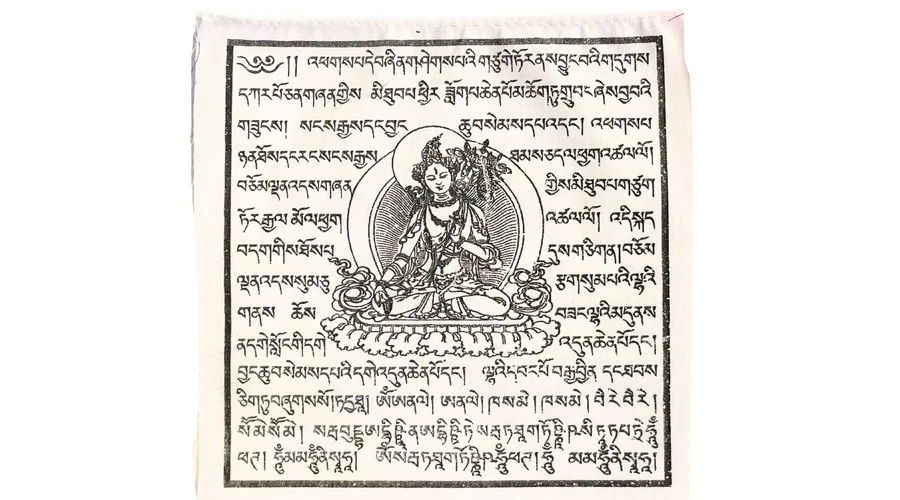 ༄༅།། འཕགས་པ་དེ་བཞིན་གཤེགས་པའི་གཙུག་ཏོར་ནས་བྱུང་བའི་གདུགས་
དཀར་པོ་ཅན་གཞན་གྱིས་ མི་ཐུབ་པ་ཕྱིར་ ཟློག་པ་ཆེན་པོ་མཆོག་ཏུ་གྲུབ་པ་ ཞེས་བྱ་བའི་
གཟུངས། སངས་རྒྱས་དང་བྱང་ ཆུབ་སེམས་དཔའ་དང་། འཕགས་པ་
ཉན་ཐོས་དང་རང་སངས་རྒྱས་ ཐམས་ཅད་ལ་ཕྱག་འཚལ་ལོ།
བཅོམ་ལྡན་འདས་གཞན་ གྱིས་མི་ཐུབ་པ་གཙུག་
ཏོར་རྒྱལ་མོ་ལ་ཕྱག་ འཚལ་ལོ། འདི་སྐད་
བདག་གིས་ཐོས་པ་ དུས་གཅིག་ན། བཅོམ་
ལྡན་འདས་སུམ་ཅུ་ རྩ་གསུམ་པའི་ལྷའི་
གནས་ ཆོས་ བཟང་ལྷའི་མདུན་ས་
ན་དགེ་སློང་གི་དགེ་ འདུན་ཆེན་པོ་དང་།
བྱང་ཆུབ་སེམས་དཔའི་དགེ་འདུན་ཆེན་པོ་དང་། ལྷའི་དབང་པོ་བརྒྱ་བྱིན་ དང་ཐབས་
ཅིག་ཏུ་བཞུགས་སོ། ཏདྱ་ཐཱ། ༀ་ཨ་ནལེ། ཨ་ནལེ། ཁ་ས་མེ། ཁ་ས་མེ། བཻ་རེ་བཻ་རེ།
སཽ་མེ་སཽ་མེ། སརྦ་བུདྡྷ་
ཕཊ། ཧཱུྃ་མ་མ་ཧཱུྃ་ནི་སྭཱ་ཧཱ། ༀ་སརྦ་ཏ་ཐཱ་ག་ཏོཥྞཱི་ཥ་ ཧཱུྃ་ཕཊ། ཧཱུྃ་ མ་མ་ཧཱུྃ་ནི་སྭཱ་ཧཱ།